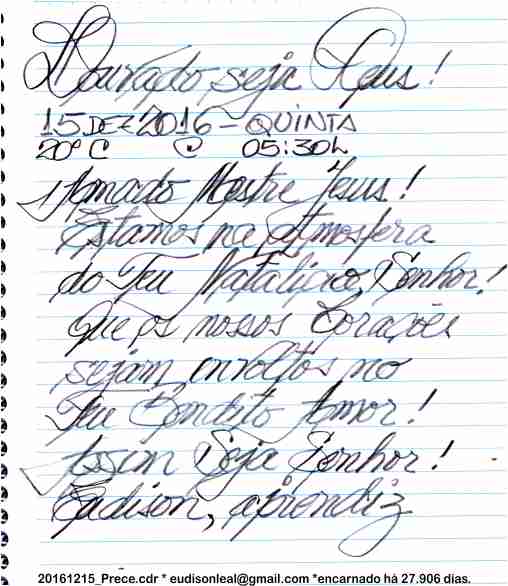 Louvado seja Deus!
15 DEZ 2016 - QUINTA
20°C 05:30h
Amado Mestre Jesus!
Estamos na Atmosfera
do Teu Natalício, Senhor!
Que os nossos Corações
sejam envoltos no
Teu Bendito Amor!
Assim Seja Senhor!
Eudison, aprendiz
20161215_Prece.cdr * eudisonleal@gmail.com *encarnado há 27.906 dias.